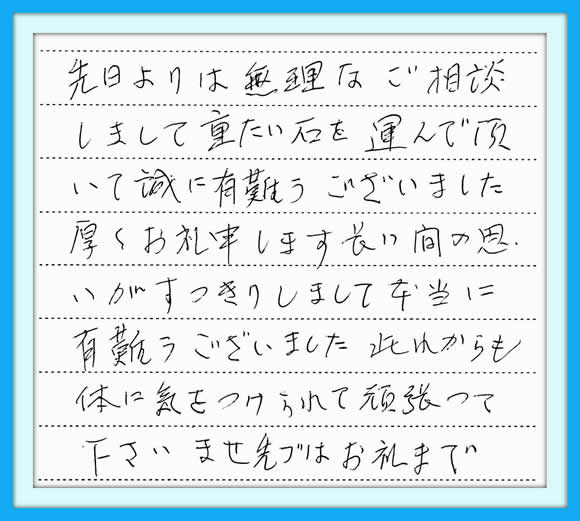 先日よりは無理なご相談
しまして重たい石を運んで頂
いて誠に有難うございました
厚くお礼申します長い間の思
いがすっきりしまして本当に
有難うございました此れからも
体に気をつけられて頑張って
下さいませ先づはお礼まで